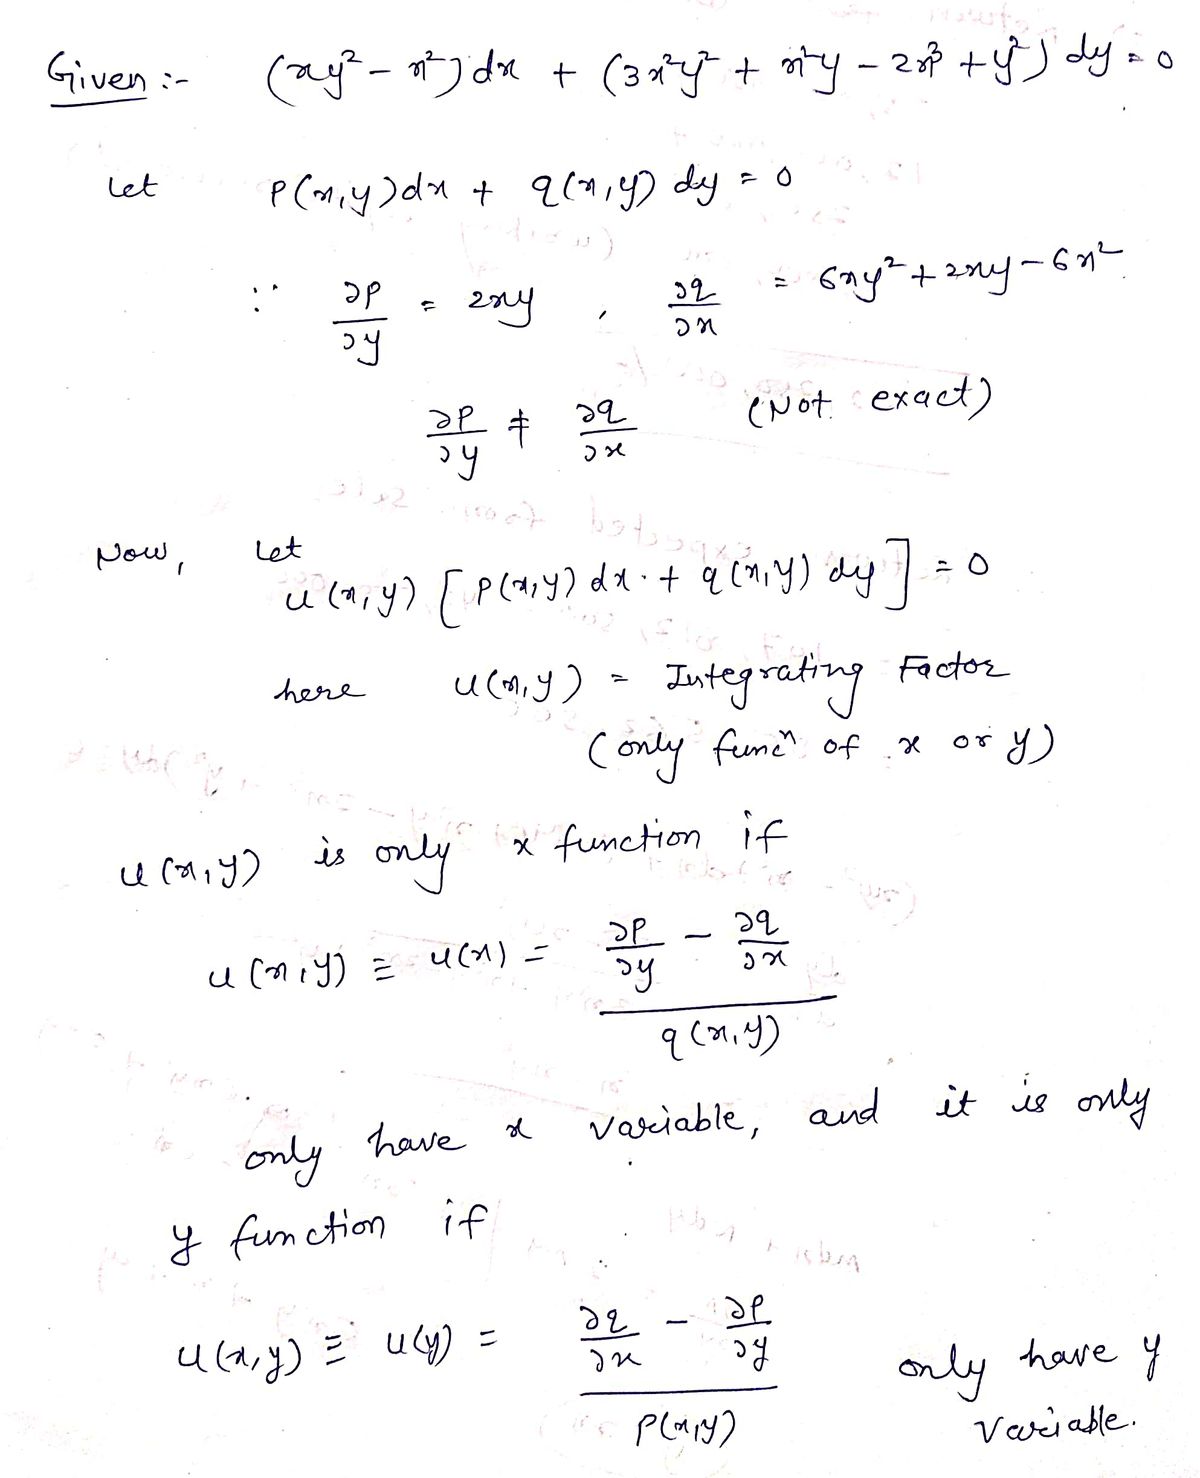 Given :- (xy² - x²) dx + (3x²y² + x²y - 2x³ + y²) dy = 0
Let P(x,y)dx + q(x,y) dy = 0
∵ ∂P/∂y = 2xy , ∂q/∂x = 6xy² + 2xy - 6x²
∂P/∂y ≠ ∂q/∂x (Not exact)
Now, Let
u(x,y) [P(x,y) dx + q(x,y) dy] = 0
here u(x,y) = Integrating Factor
(only funcⁿ of x or y)
u(x,y) is only x function if
u(x,y) ≡ u(x) = (∂P/∂y - ∂q/∂x) / q(x,y)
only have x variable, and it is only
y function if
u(x,y) ≡ u(y) = (∂q/∂x - ∂P/∂y) / P(x,y) only have y
variable.